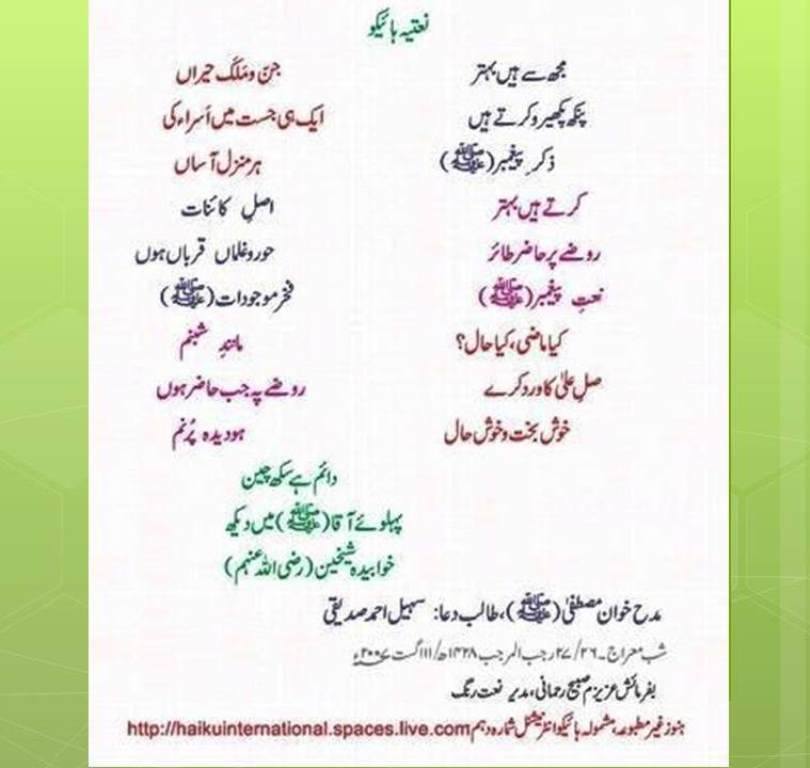 نعتیہ ہائیکو
مجھ سے ہیں بہتر
پنکھ پکھیرو کرتے ہیں
ذکرِ پیغمبر(ﷺ)
کرتے ہیں بہتر
روضے پر حاضر طائر
نعتِ پیغمبر(ﷺ)
کیا ماضی، کیا حال؟
صلِ علیٰ کا ورد کرے
خوش بخت و خوش حال
جنّ و مَلَک حیراں
ایک ہی جست میں اَسراء کی
ہر منزل آساں
اصلِ کائنات
حور و غلماں قرباں ہوں
فخرِ موجودات(ﷺ)
مانندِ شبنم
روضے پہ جب حاضر ہوں
ہو دیدہ پُرنم
دائم ہے سکھ چین
پہلوئے آقا(ﷺ) میں دیکھ
خوابیدہ شیخین (رضی اللہ عنہم)
مدح خوان مصطفیٰ (ﷺ)، طالب دعا: سہیل احمد صدیقی
شب معراج۔۲۶/۲۷رجب المرجب ۱۴۲۸ھ/۱۱اگست ۲۰۰۷ء
بفرمائش عزیزم صبیح رحمانی، مدیر نعت رنگ
ہنوز غیر مطبوعہ، مشمولہ ہائیکو انٹرنیشنل شمارہ دہم http://haikuinternational.spaces.live.com